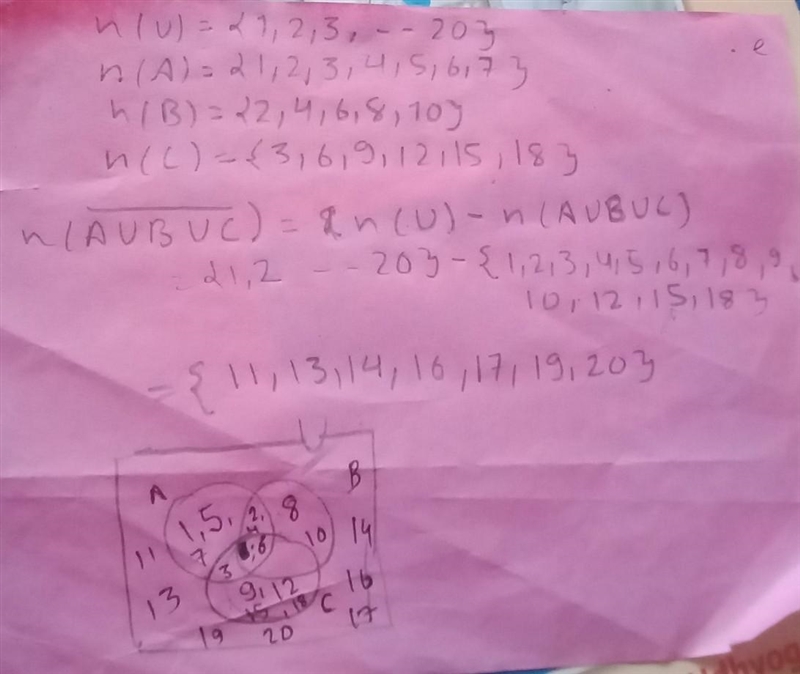 n(U) = {1,2,3, -- 20}
. e
n(A) = {1,2,3,4,5,6,7}
n(B) = {2,4,6,8,10}
n(C) = {3,6,9,12,15,18}
n(A̅U̅B̅U̅C̅) = n(U) - n(AUBUC)
= {1,2 -- 20} - {1,2,3,4,5,6,7,8,9,
10,12,15,18}
= {11,13,14,16,17,19,20}
U
A B
1,5, 2, 8
4
11 7 ,6 10 14
3
13 9,12 16
15,18 C 17
19 20